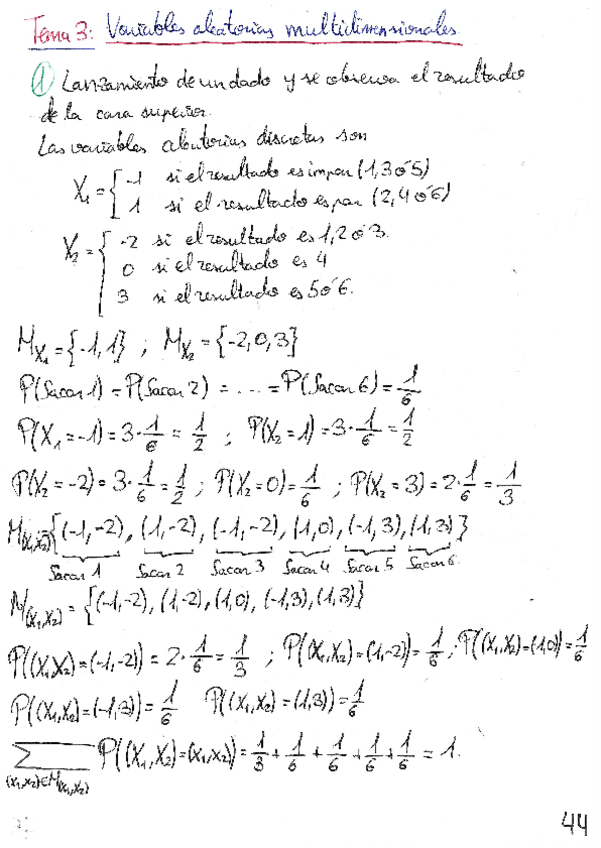 Tema 3: Variables aleatorias multidimensionales
① Lanzamiento de un dado y se observa el resultado
de la cara superior.
Las variables aleatorias discretas son
X₁ = { -1 si el resultado es impar (1, 3 ó 5)
1 si el resultado es par (2, 4 ó 6)
X₂ = { -2 si el resultado es 1, 2 ó 3.
0 si el resultado es 4
3 si el resultado es 5 ó 6.
M_X₁ = {-1, 1} ; M_X₂ = {-2, 0, 3}
P(Sacar 1) = P(Sacar 2) = .... = P(Sacar 6) = 1/6
P(X₁ = -1) = 3·1/6 = 1/2 ; P(X₂ = 1) = 3·1/6 = 1/2
P(X₂ = -2) = 3·1/6 = 1/2 ; P(X₂ = 0) = 1/6 ; P(X₂ = 3) = 2·1/6 = 1/3
M(X₁,X₂) = {(-1,-2), (1,-2), (-1,-2), (1,0), (-1,3), (1,3)}
Sacar 1 Sacar 2 Sacar 3 Sacar 4 Sacar 5 Sacar 6
M(X₁,X₂) = {(-1,-2), (1,-2), (1,0), (-1,3), (1,3)}
P((X₁,X₂) = (-1,-2)) = 2·1/6 = 1/3 ; P((X₁,X₂) = (1,-2)) = 1/6 ; P((X₁,X₂) = (1,0)) = 1/6
P((X₁,X₂) = (-1,3)) = 1/6 P((X₁,X₂) = (1,3)) = 1/6
∑ P((X₁,X₂) = (x₁,x₂)) = 1/3 + 1/6 + 1/6 + 1/6 + 1/6 = 1.
(x₁,x₂)∈M(X₁,X₂)
44